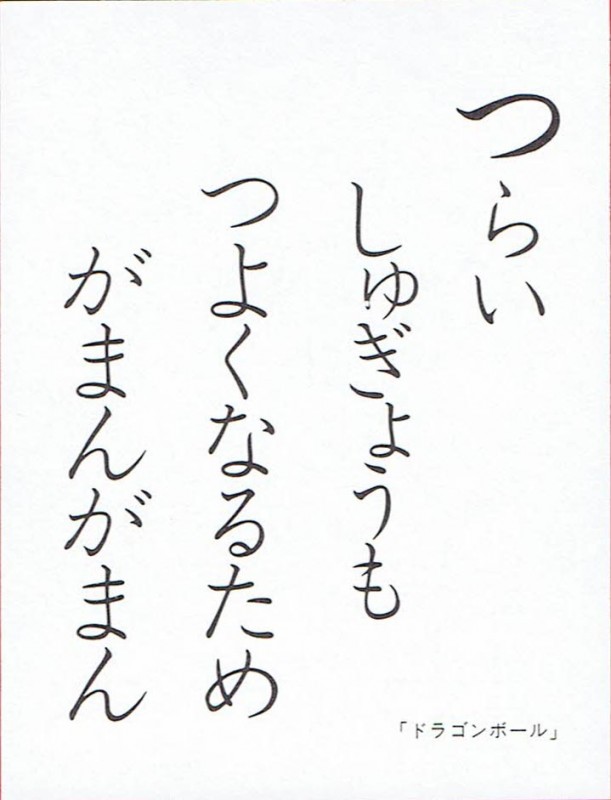 つらい
しゅぎょうも
つよくなるため
がまんがまん
「ドラゴンボール」